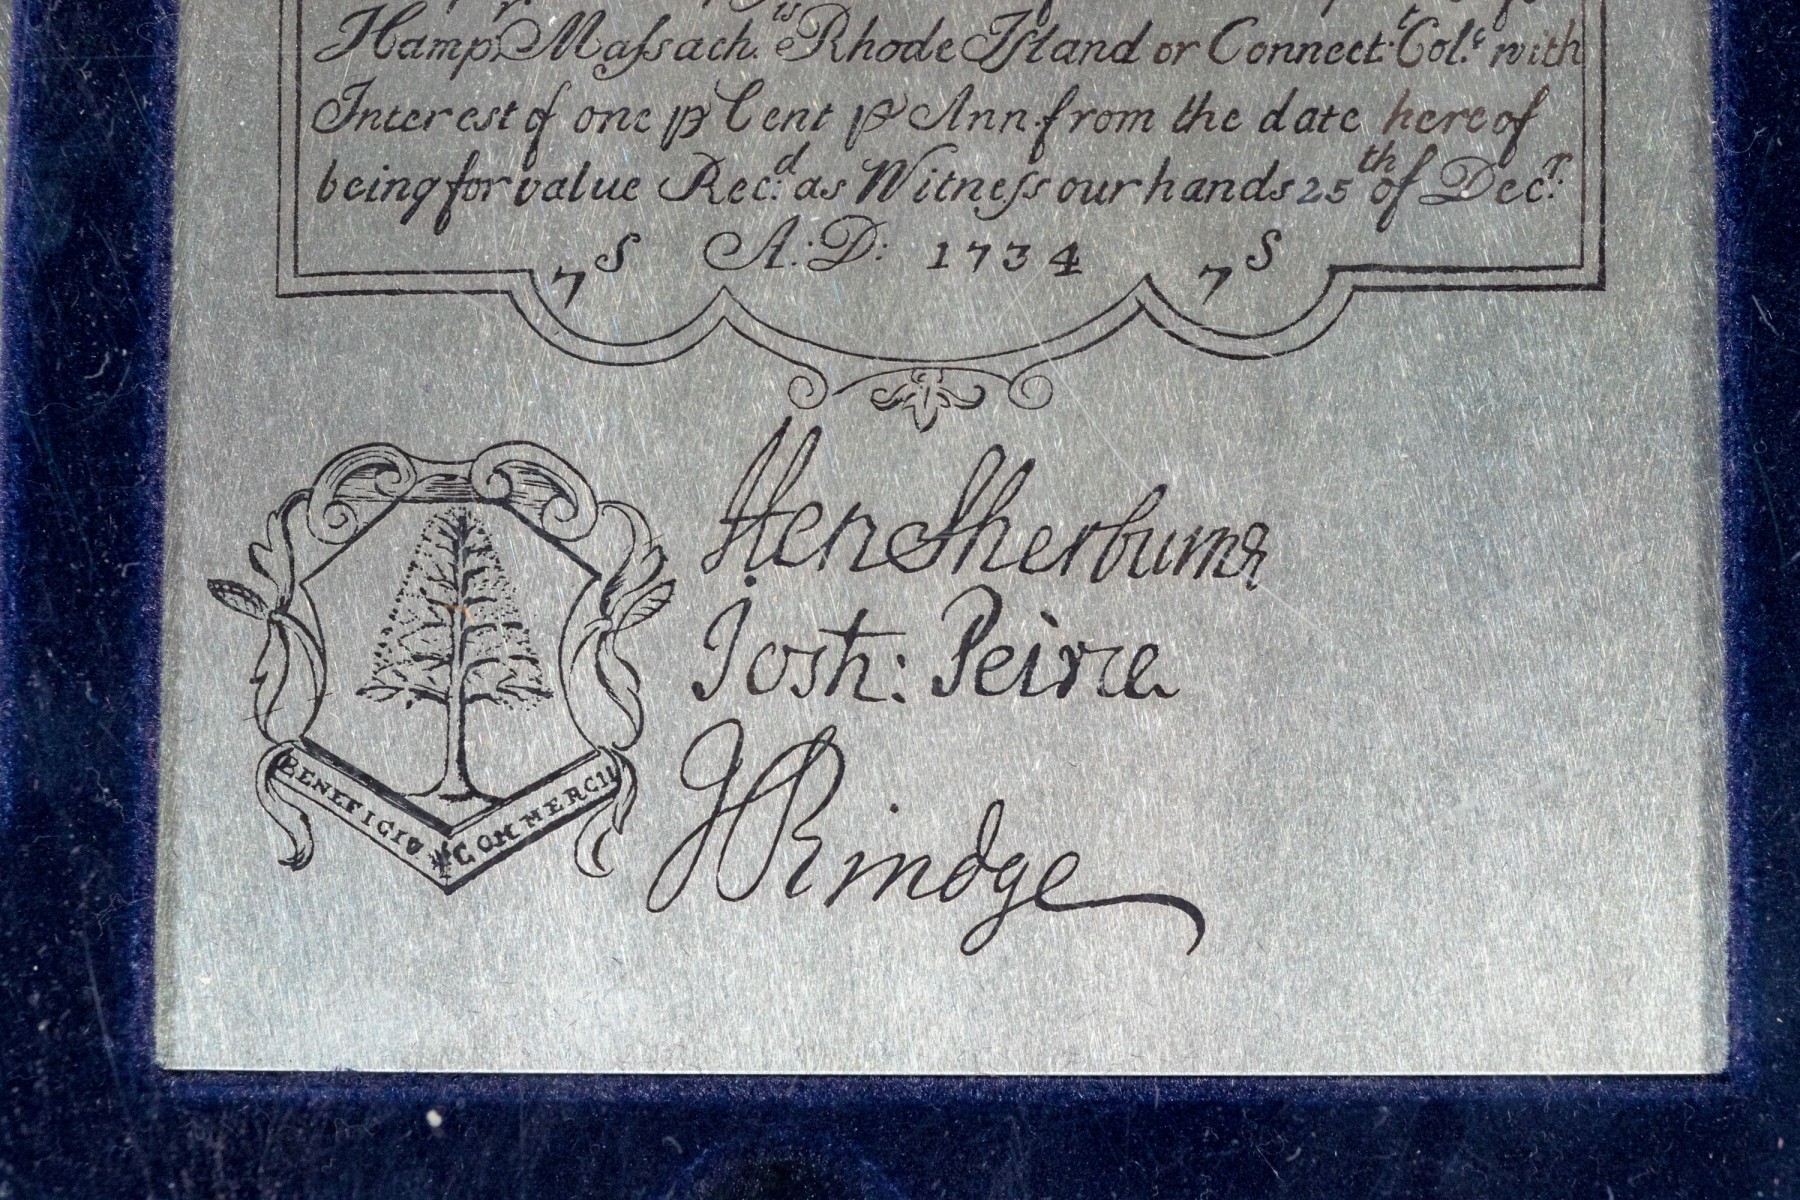 Hamp. Maſsach.ts Rhode Island or Connect.t Col.s with
Interest of one p Cent p Ann. from the date hereof
being for value Rec.d as Witneſs our hands 25th of Decr.
7S A:D: 1734 7S
Hen Sherburne
Josh: Peirce
J Rindge
BENEFICIO COMMERCII